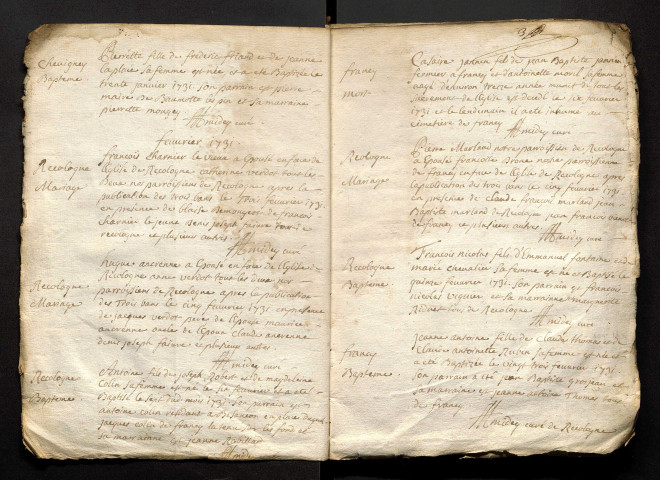 Chevigney
Baptême
Pierrette fille de frederic friand et de jeanne
laplace sa femme est née et a été Baptisée le
trente janvier 1731. son parrain est pierre
maire de et sa marraine
pierrette
Midey curé
fevrier 1731.
Recologne
Mariage
françois Charnier le vieux a Epousé en face de
Eglise de Recologne catherine verdot tous les
deux nos parroissiens de Recologne apres la
publication des trois bans le trois fevrier 1731.
en presence de de francois
Charnier le jeune denis joseph faivre tous de
recologne et plusieurs autres.
Midey curé
Recologne
Mariage
ancrenne a Epousé en face de l'Eglise de
Recologne anne verdot tous les deux nos
parroissiens de Recologne apres la publication
des trois bans le cinq fevrier 1731. en presence
de jacques verdot pere de l'epouse maurice
ancrenne oncles de l'epoux claude ancrenne
denis joseph faivre et plusieurs autres
Midey curé
Recologne
Bapteme
Antoine fils de joseph Robert et de magdeleine
Colin sa femme est né le six fevrier et a été
Baptisé le sept du mois 1731. son parrain est
antoine colin residant a Besancon en place duquel
jacques colin de francy la tenu sur les fond et
sa marraine est jeanne
Midey
francy
mort
jeannin fils de jean Baptiste jannin
fermier a francy et d'antoinette moril sa femme
aagé d'environ treize année munit de tous les
sacrement de l'Eglise est decedé le six fevrier
1731 et le lendemain il a été inhumé au
cimetiere de francy
Midey curé
Recologne
Mariage
Pierre Merland notre parroissien de Recologne
a Epousé francoise Drone notre parroissienne
de francy en face de l'Eglise de Recologne apres
la publication des trois bans le cinq fevrier 1731
en presence de claude francois merland jean-
Baptiste merland de Recologne jean francois
de francy et plusieurs autres.
Midey curé
Recologne
Bapteme
francois nicolas fils d'Emmanuel fontaine et de
marie chevalier sa femme est né et Baptisé le
quinze fevrier 1731. son parrain est francois
nicolas viguier et sa marraine marguerite
de Recologne
Midey curé
francy
Bapteme
jeanne antoine fille de claude thomas et de
Claude antoinette sa femme est née et
a été Baptisée le vingt trois fevrier 1731
son parrain a été jean Baptiste grosjean et
sa marraine est jeanne antoine Thomas tous
de francy
Midey curé de Recologne